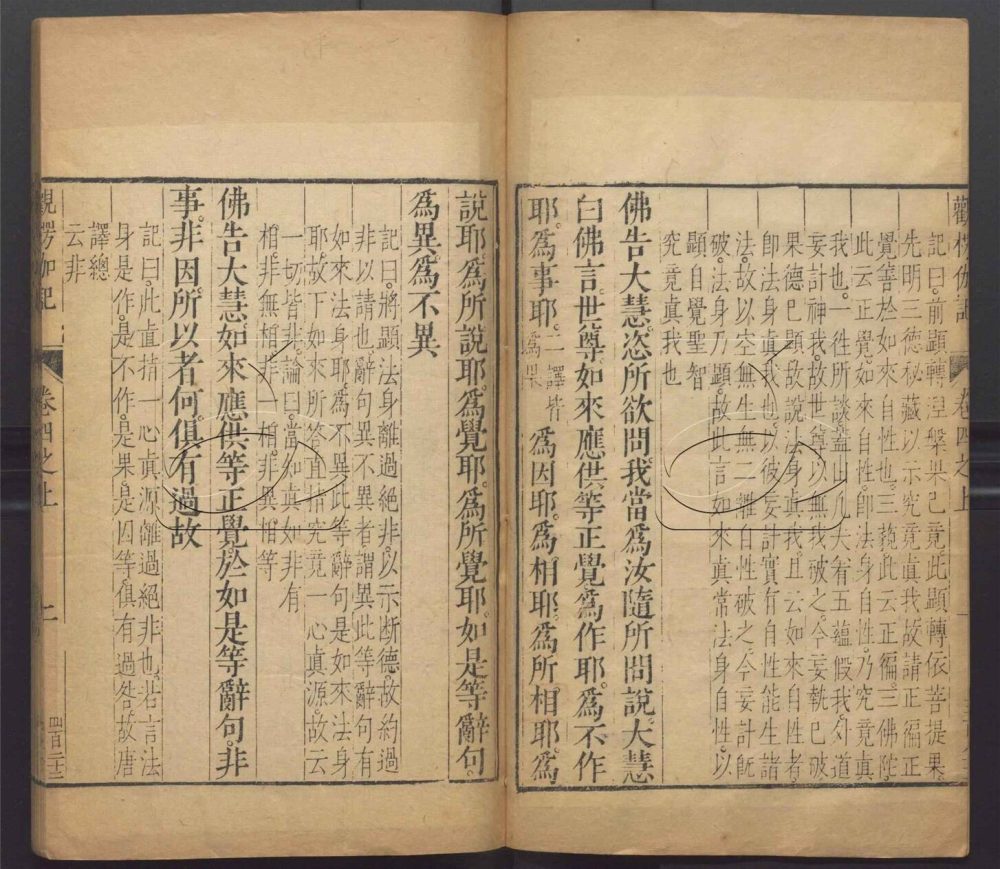 觀楞伽記 卷四之上
記曰前顯轉涅槃果已竟此顯轉依菩提果
先明三德秘藏以示究竟真我故請正徧正
覺善於如來自性也三藐此云正徧三佛陀
此云正覺如來自性即法身自性乃究竟真
我也一往所談蓋由凡夫有五蘊假我外道
妄計神我故世尊以無我破之今妄執已破
果德已顯故說法身真我且云如來自性者
即法身真我也以彼妄計實有自性能生諸
法故以空無生無二離自性破之今妄計既
破法身乃顯故此言如來真常法身自性以
顯自覺聖智
究竟真我也
佛告大慧恣所欲問我當為汝隨所問說大慧
白佛言世尊如來應供等正覺為作耶為不作
耶為事耶二譯皆為果為因耶為相耶為所相耶為
說耶為所說耶為覺耶為所覺耶如是等辭句
為異為不異
記曰將顯法身離過絕非以示斷德故約過
非以請也辭句異不異者謂異此等辭句有
如來法身耶為不異此等辭句是如來法身
耶故下如來所答直指究竟一心真源故云
一切皆非論曰當知真如非有
相非無相非一相非異相等
佛告大慧如來應供等正覺於如是等辭句非
事非因所以者何俱有過故
記曰此直指一心真源離過絕非也若言法
身是作是不作是果是因等俱有過咎故唐
譯總
云非
觀楞伽記 卷四之上 二 四百三十二